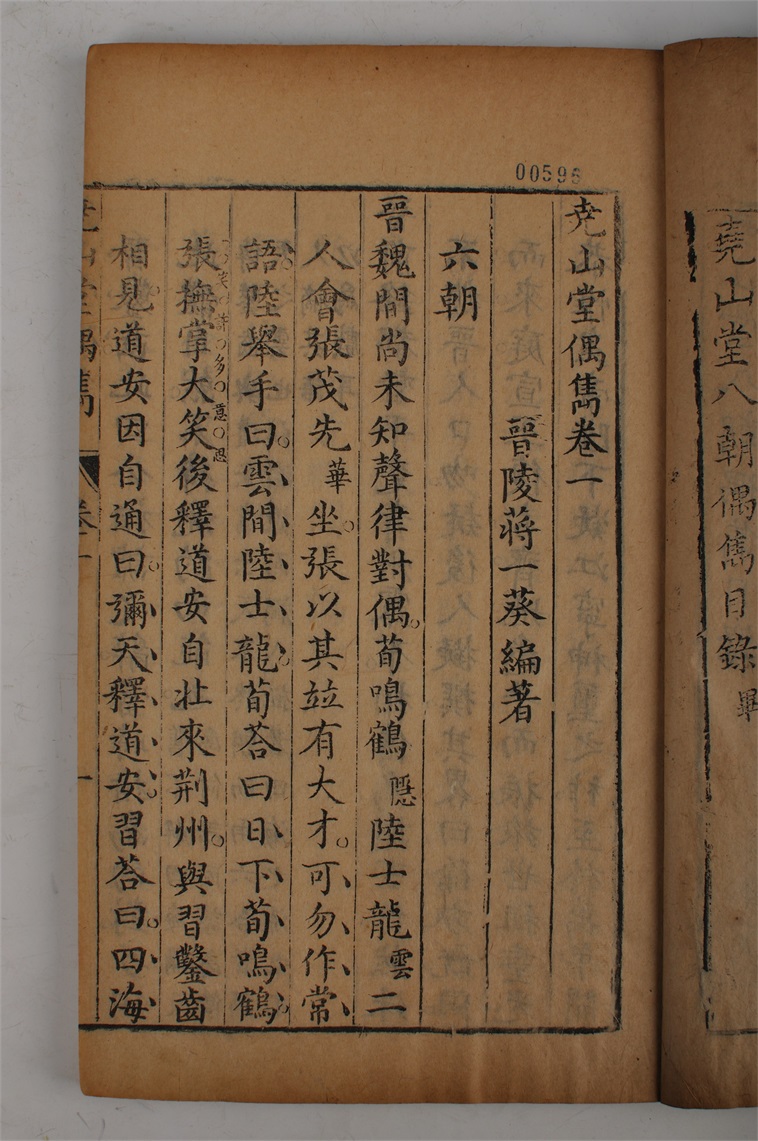 堯山堂八朝偶雋目錄畢
00595
尭山堂偶雋卷一
晉陵蔣一葵編著
六朝
晉魏間尚未知聲律對偶荀鳴鶴隱陸士龍雲二
人會張茂先華坐張以其竝有大才可勿作常
語陸舉手曰雲間陸士龍荀荅曰日下荀鳴鶴
張撫掌大笑後釋道安自壯來荆州與習鑿齒
相見道安因自通曰彌天釋道安習荅曰四海
山堂偶雋
卷一
一